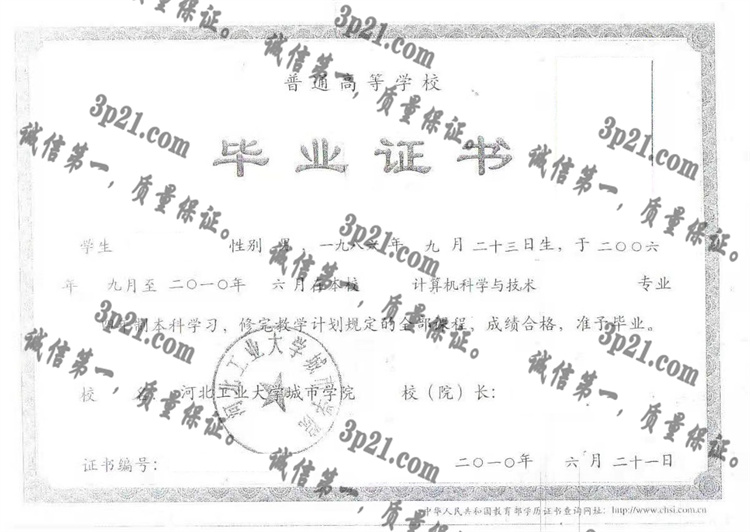 普通高等学校
毕业证书
学生 性别 男，一九八六年 九月二十三日生，于二〇〇六
年 九月至二〇一〇年 六月在本校 计算机科学与技术 专业
四年制本科学习，修完教学计划规定的全部课程，成绩合格，准予毕业。
校 名：河北工业大学城市学院 校（院）长：
河北工业大学城市学院
证书编号： 二〇一〇年 六月二十一日
中华人民共和国教育部学历证书查询网址：http://www.chsi.com.cn
3p21.com
诚信第一，质量保证。
3p21.com
诚信第一，质量保证。
3p21.com
诚信第一，质量保证。
3p21.com
诚信第一，质量保证。
3p21.com
诚信第一，质量保证。
3p21.com
诚信第一，质量保证。
3p21.com
诚信第一，质量保证。
3p21.com
诚信第一，质量保证。